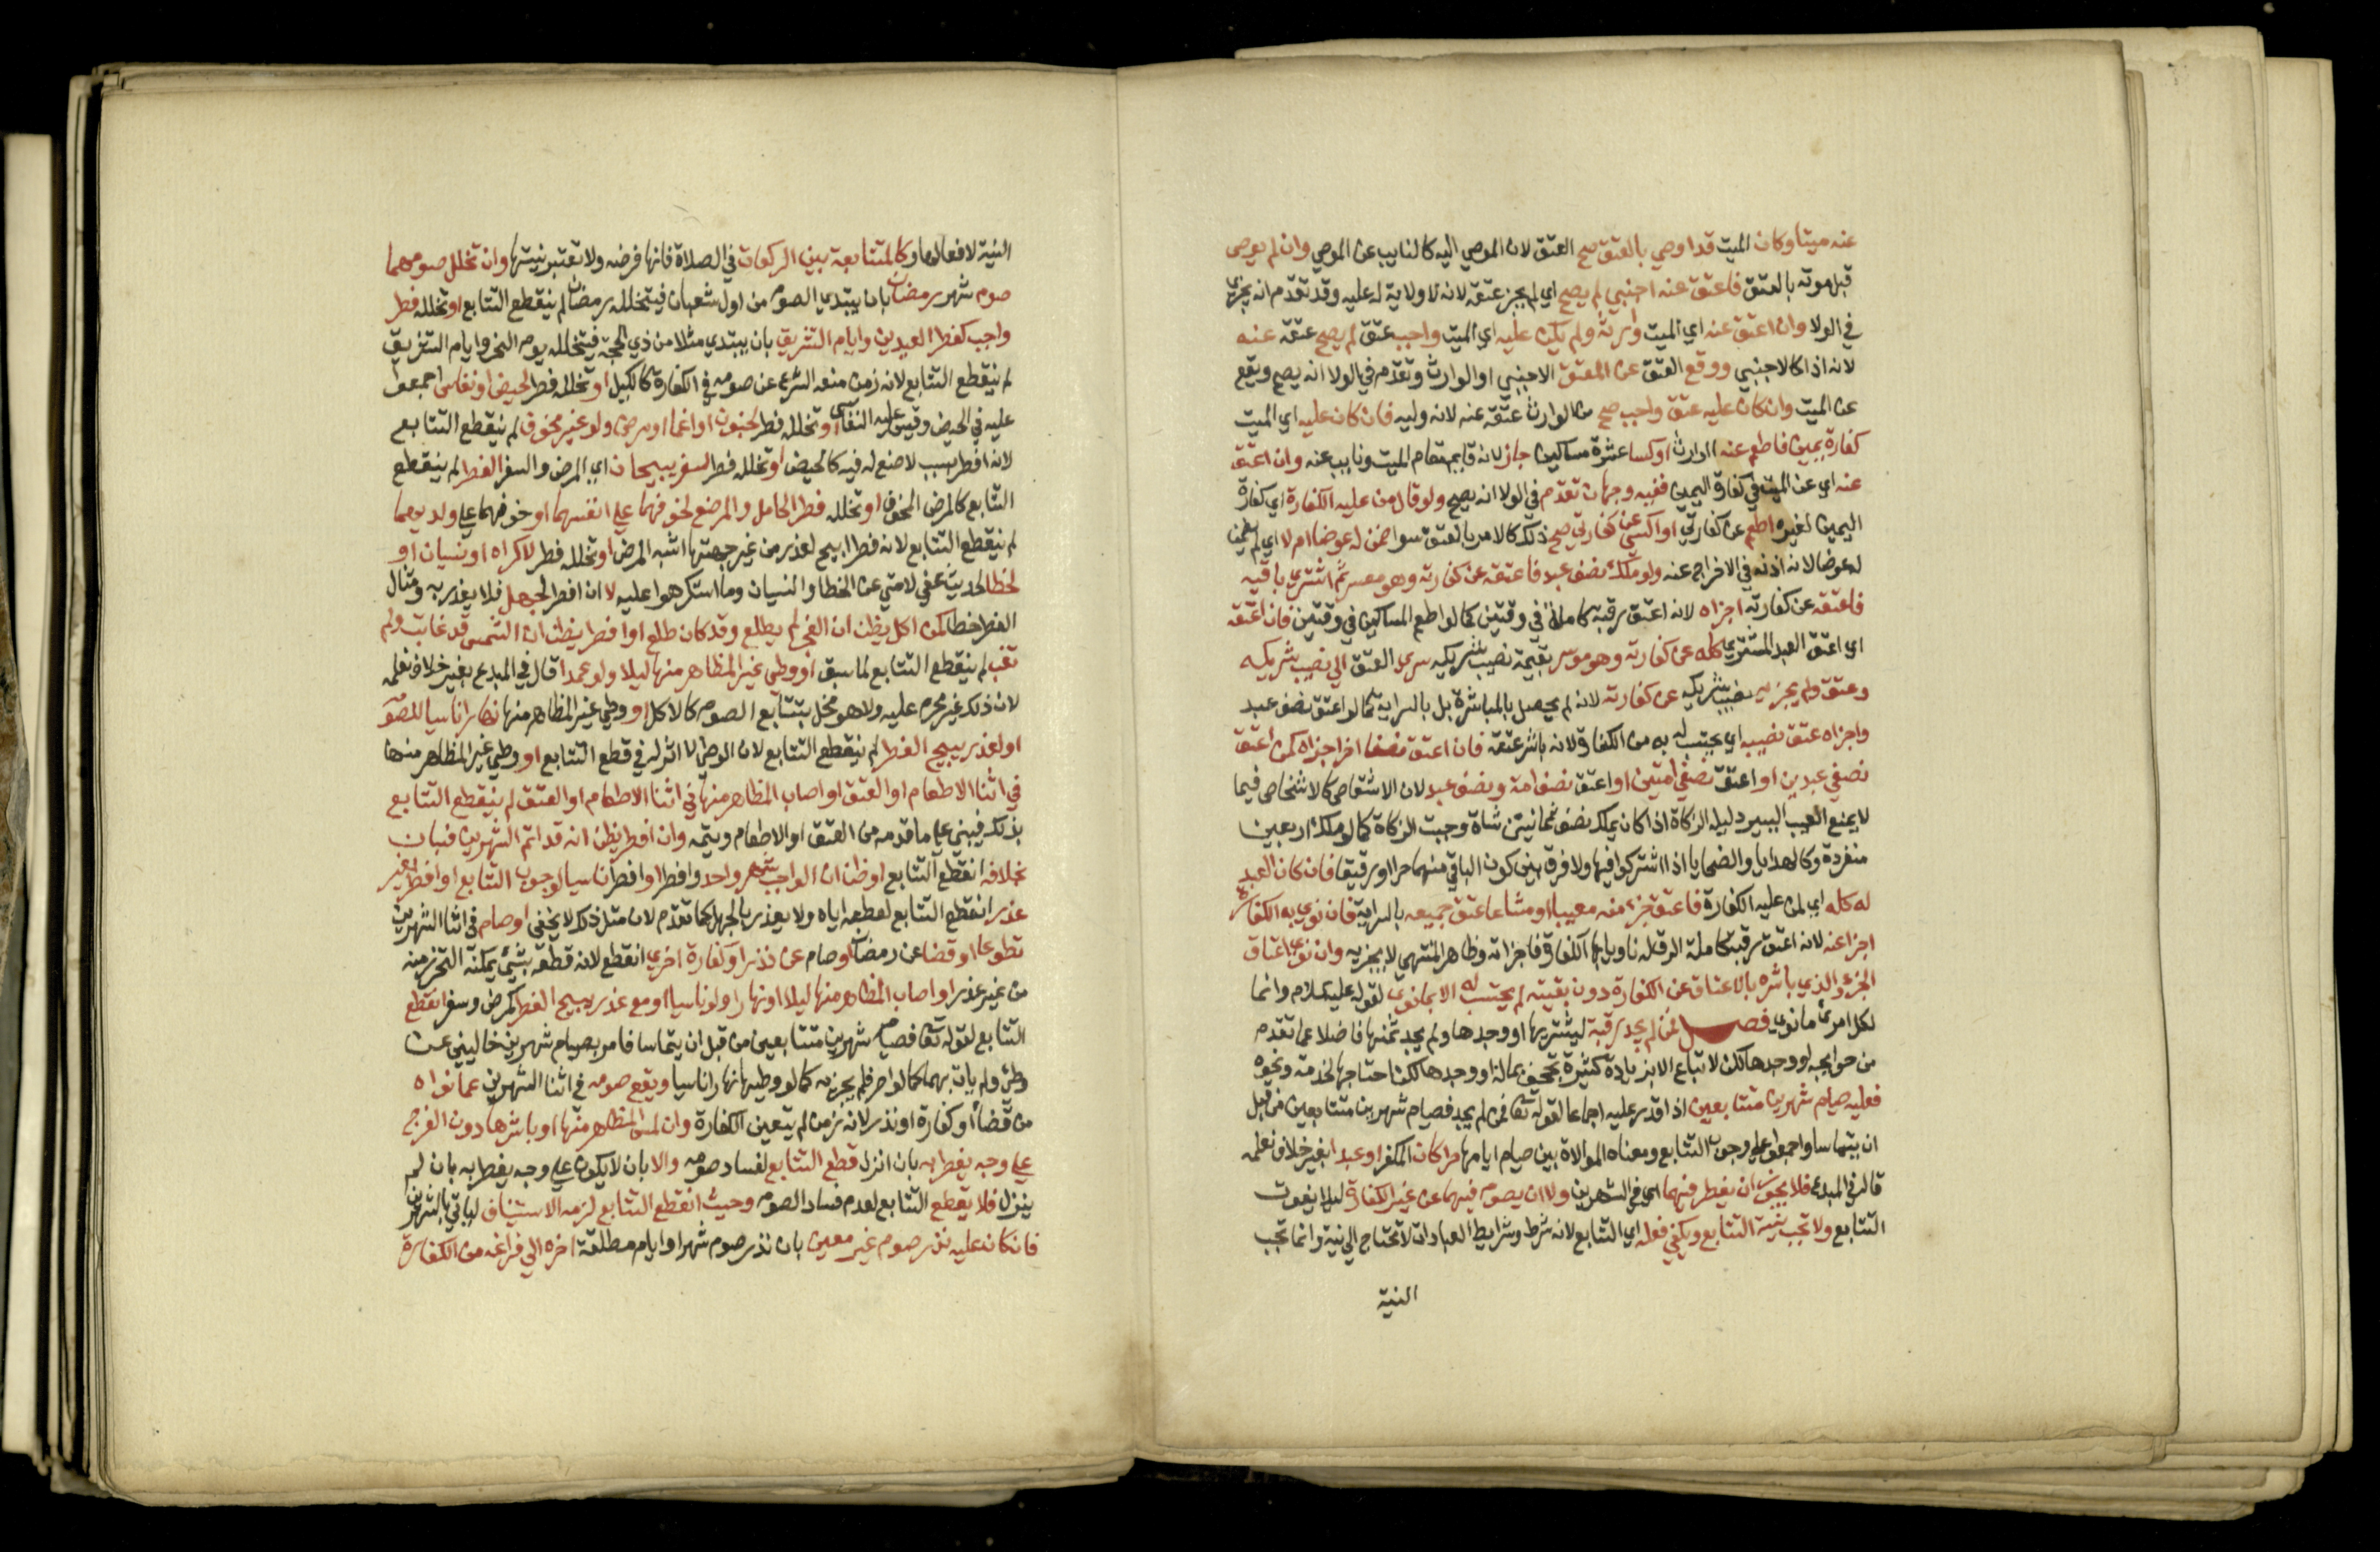 عنه ميتا وكان الميت قد اوصي بالعتق صح العتق لان الموصي اليه كالنايب عن الموصي وان لم يوصى
قبل موته بالعتق فاعتق عنه اجنبي لم يصح اي لم يجز عتقه لانه لا ولاية له عليه وقد تقدم انه يجزي
في الولا وان اعتق عنه اي الميت وارثه ولم يكن عليه اي الميت واجب عتق لم يصح عتقه عنه
لانه اذا كالاجنبي ووقع العتق عن المعتق الاجنبي او الوارث وتقدم في الولا انه يصح ويقع
عن الميت وان كان عليه عتق واجب صح من الوارث عتقه عنه لانه وليه فان كان عليه اي الميت
كفارة يمين فاطعم عنه الوارث او كسا عشرة مساكين جاز لانه قايم مقام الميت ونايب عنه وان اعتق
عنه اي عن الميت في كفارة اليمين ففيه وجهان تقدم في الولا انه يصح ولو قال من عليه الكفارة اي كفارة
اليمين لغيره اطعم عن كفارتي او اكسي عن كفارتي صح ذلك كالامر بالعتق سوا ضمن له عوضا ام لا اي لم يضمن
له عوضا لانه اذنه في الاخراج عنه ولو ملك نصف عبد فاعتقه عن كفارته وهو معسر ثم اشتري باقيه
فاعتقه عن كفارته اجزاه لانه اعتق رقبة كاملة في وقتين كما لو اطعم المساكين في وقتين فان اعتقه
اي اعتق العبد المشتري كله عن كفارته وهو موسر بقيمة نصيب شريكه سري العتق الي نصيب شريكه
وعتق ولم يجزيه نصيب شريكه عن كفارته لانه لم يحصل بالمباشرة بل بالسراية كما لو اعتق نصف عبد
واجزاه عتق نصيبه اي يحتسب له به من الكفارة لانه باشر عتقه فان اعتق نصفا اخر اجزاه كمن اعتق
نصفي عبدين او اعتق نصفي امتين او اعتق نصف امة ونصف عبد لان الاشقاص كالاشخاص فيما
لا يمنع العيب اليسير دليله الزكاة اذا كان يملك نصف ثمانين شاة وجبت الزكاة كما لو ملك اربعين
منفردة وكالهدايا والضحايا اذا اشتركوا فيها ولا فرق بين كون الباقي منهما حرا او رقيقا فان كان العبد
له كله اي لمن عليه الكفارة فاعتق جزء منه معيبا او مشاعا عتق جميعه بالسراية فان نوي به الكفارة
اجزا عنه لانه اعتق رقبة كاملة الرق ناويا بها الكفارة فاجزاته وظاهر المنتهى لا يجزيه وان نوي اعتاق
الجزء الذي باشره بالاعتاق عن الكفارة دون بقيته لم يحتسب له الا بما نوي لقوله عليه السلام وانما
لكل امرئ ما نوي فصل فمن لم يجد رقبة ليشتريها او وجدها ولم يجد ثمنها فاضلا عما تقدم
من حوايجه او وجدها لكن لا تباع الا بزيادة كثيرة تجحف بماله او وجدها لكن احتاجها لخدمة ونحوه
فعليه صيام شهرين متتابعين اذا قدر عليه اجماعا لقوله تعالى فمن لم يجد فصيام شهرين متتابعين من قبل
ان يتماسا واجمعوا على وجوب التتابع ومعناه الموالاة بين صيام ايامها حرا كان المكفر او عبدا بغير خلاف نعلمه
قاله في المبدع فلا يجوز ان يفطر فيهما اي في الشهرين ولا ان يصوم فيهما عن غير الكفارة ليلا يفوت
التتابع ولا تجب نية التتابع ويكفي فعله اي التتابع لانه شرط وشرايط العبادات لا تحتاج الي نية وانما تجب
النية
النية لافعالها وكالمتتابعة بين الركعات في الصلاة فانها فرضه ولا تعتبر نيتها وان تخلل صومهما
صوم شهر رمضان بان يبتدي الصوم من اول شعبان فيتخلله رمضان لم ينقطع التتابع او تخلله فطر
واجب كفطر العيدين وايام التشريق بان يبتدي مثلا من ذي الحجة فيتخلله يوم النحر وايام التشريق
لم ينقطع التتابع لانه زمن منعه الشرع عن صومه في الكفارة كالليل او تخلله فطر الحيض او نفاس اجمعوا
عليه في الحيض وقيس عليه النفاس او تخلله فطر لجنون او اغما او مرض ولو غير مخوف لم ينقطع التتابع
لانه افطر بسبب لا صنع له فيه كالحيض او تخلله فطر لسفر يبيحان اي المرض والسفر الفطر لم ينقطع
التتابع كالمرض المخوف او تخلله فطر الحامل والمرضع لخوفهما على انفسهما او خوفهما على ولديهما
لم ينقطع التتابع لانه فطر ابيح لعذر من غير جهتها اشبه المرض او تخلله فطر لاكراه او نسيان او
لخطا لحديث عفي لامتي عن الخطا والنسيان وما استكرهوا عليه لا ان افطر لجهل فلا يعذر به ومثال
الفطر خطا كمن اكل يظن ان الفجر لم يطلع وقد كان طلع او افطر يظن ان الشمس قد غابت ولم
تغب لم ينقطع التتابع لما سبق او وطي غير المظاهر منها ليلا ولو عمدا قال في المبدع بغير خلاف نعلمه
لان ذلك غير محرم عليه ولا هو مخل بتتابع الصوم كالاكل او وطي غير المظاهر منها نهارا ناسيا للصوم
او لعذر يبيح الفطر لم ينقطع التتابع لان الوطي لا اثر له في قطع التتابع او وطي غير المظاهر منها
في اثنا الاطعام او العتق او اصاب المظاهر منها في اثنا الاطعام او العتق لم ينقطع التتابع
بذلك فيبني على ما قدمه من العتق او الاطعام ويتمه وان افطر يظن انه قد اتم الشهرين فبان
بخلافه انقطع التتابع او ظن ان الواجب شهر واحد وافطر او افطر ناسيا لوجوب التتابع او افطر لغير
عذر انقطع التتابع لقطعه اياه ولا يعذر بالجهل كما تقدم لان مثل ذلك لا يخفى او صام في اثنا الشهرين
تطوعا او قضا عن رمضان او صام عن نذر او كفارة اخري انقطع لانه قطعه بشيء يمكنه التحرز منه
من غير عذر او اصاب المظاهر منها ليلا او نهارا ولو ناسيا او مع عذر يبيح الفطر كمرض وسفر انقطع
التتابع لقوله تعالى فصيام شهرين متتابعين من قبل ان يتماسا فامر بصيام شهرين خاليين عن
وطئ ولم يات بهما كما لو امر فلم يجزيه كما لو وطيها نهارا ناسيا ويقع صومه في اثنا الشهرين عما نواه
من قضا او كفارة او نذر لانه زمن لم يتعين الكفارة وان لمس المظاهر منها او باشرها دون الفرج
على وجه يفطر به بان انزل قطع التتابع لفساد صومه والا بان لا يكون على وجه يفطر به بان لم
ينزل فلا يقطع التتابع لعدم فساد الصوم وحيث انقطع التتابع لزمه الاستيناف لياتي بالشهرين
فان كان عليه نذر صوم غير معين بان نذر صوم شهر او ايام مطلقة اخره الي فراغه من الكفارة